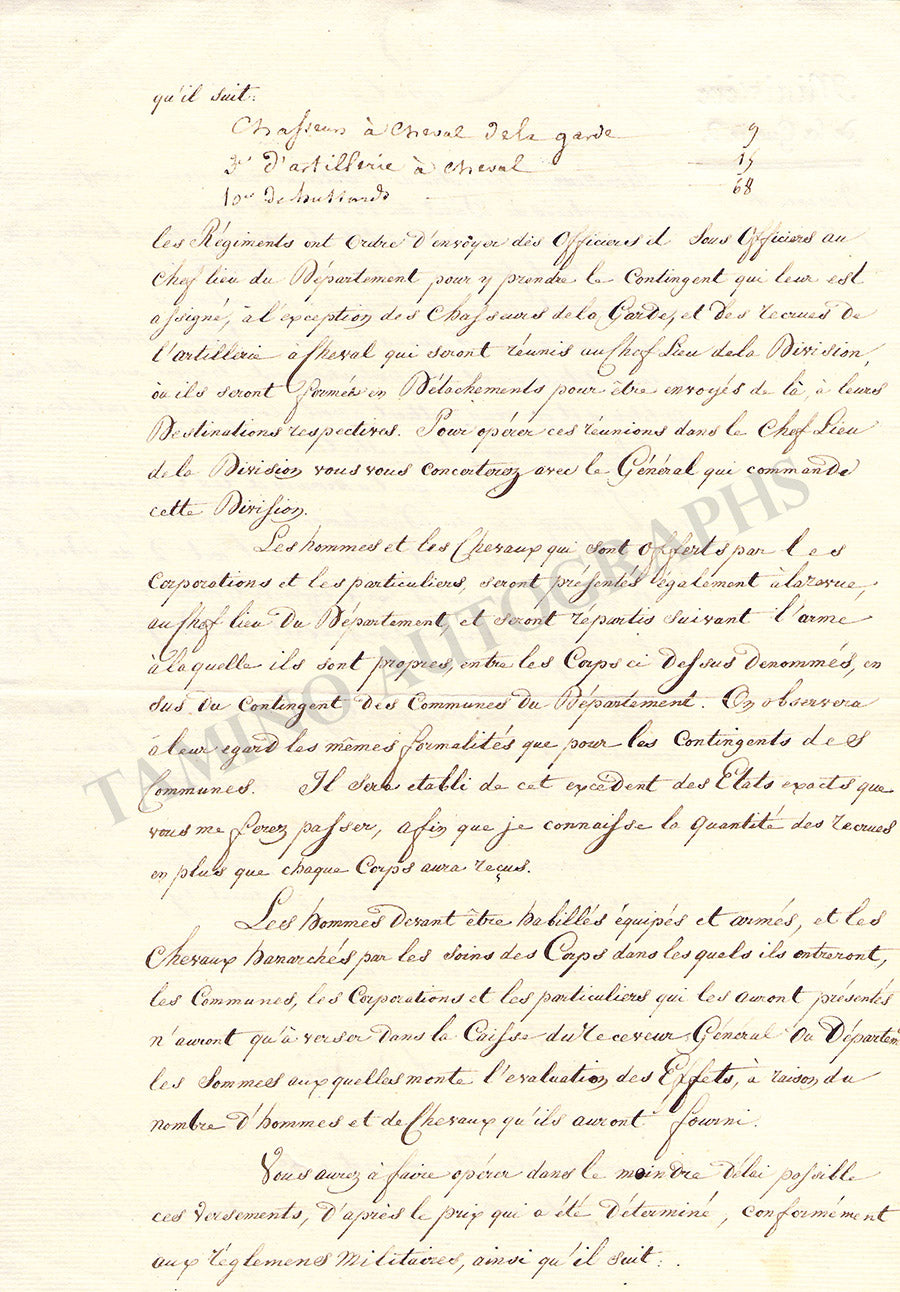 qu'il suit:
Chasseurs à cheval dela garde 9
3e d'artillerie à cheval 15
10e de hussards 68
les Régiments ont Ordre D'envoyer des Officiers et Sous Officiers au
Chef lieu du Département pour y prendre le Contingent qui leur est
assigné, à l'éxception des Chasseurs dela Garde, et des recrues de
l'artillerie à Cheval qui seront réunis au Chef Lieu dela Division
où ils seront formés en Détachements pour être envoyés de là, à leurs
Destinations respectives. Pour opérer ces réunions dans le Chef Lieu
dela Division vous vous concerterez avec le Général qui commande
cette Division.
Les hommes et les Chevaux qui sont Offerts par les
Corporations et les particuliers, seront présentés également à larevue,
au Chef lieu du Département, et seront répartis suivant l'arme
à laquelle ils sont propres, entre les Corps ci dessus denommés, en
sus du Contingent des Communes du Département. On observera
à leur egard les mêmes formalités que pour les Contingents des
Communes. Il sera etabli de cet excédent des Etats exacts que
vous me ferez passer, afin que je connaisse la quantité des recrues
en plus que chaque Corps aura reçus.
Les hommes devant être habillés équipés et armés, et les
Chevaux harnachés par les soins des Corps dans lesquels ils entreront,
les Communes, les Corporations et les particuliers qui les auront présentés
n'auront qu'à verser dans la Caisse du receveur Général du Départem
les Sommes auxquelles monte l'évaluation des Effets, à raison du
nombre d'hommes et de Chevaux qu'ils auront fourni.
Vous aurez à faire opérer dans le moindre délai possible
ces versements, d'après le prix qui a été déterminé, conformément
aux règlemens Militaires, ainsi qu'il suit:
TAMINO AUTOGRAPHS